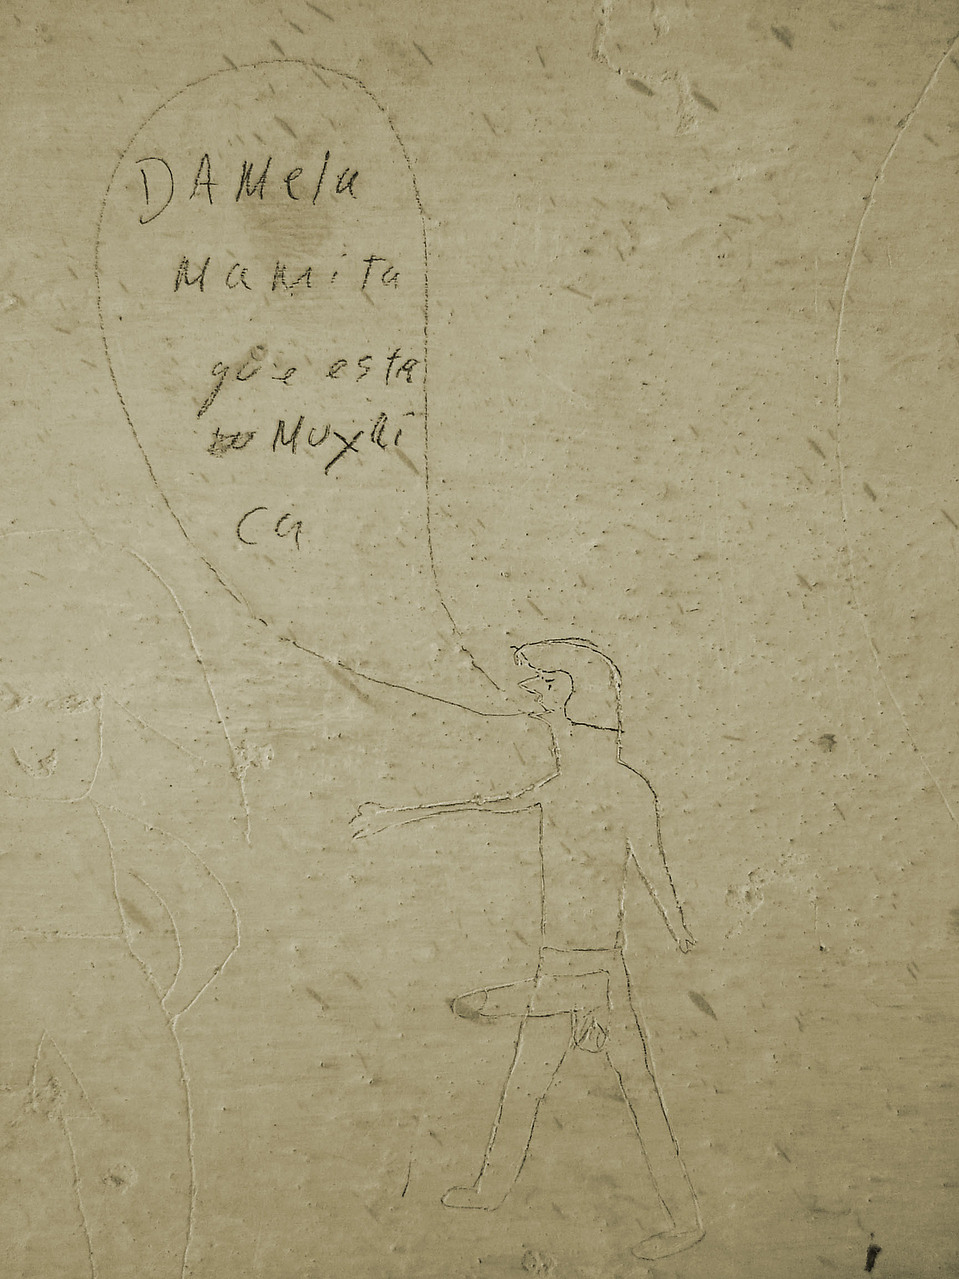 DAMela
Mamita
que esta
Muxhi
ca